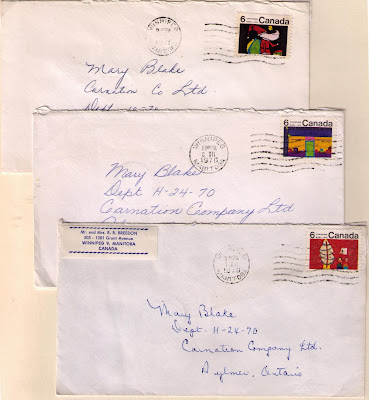 WINNIPEG
MANITOBA
6 Canada
Mary Blake
Carnation Co Ltd.
WINNIPEG
1970
MANITOBA
6 Canada
Mary Blake
Dept H-24-70
Carnation Company Ltd
Mr. and Mrs. R. B. BREEDON
1081 Grant Avenue
WINNIPEG 9, MANITOBA
CANADA
1970
MANITOBA
6 Canada
Mary Blake
Dept. H-24-70
Carnation Company Ltd.
Aylmer, Ontario